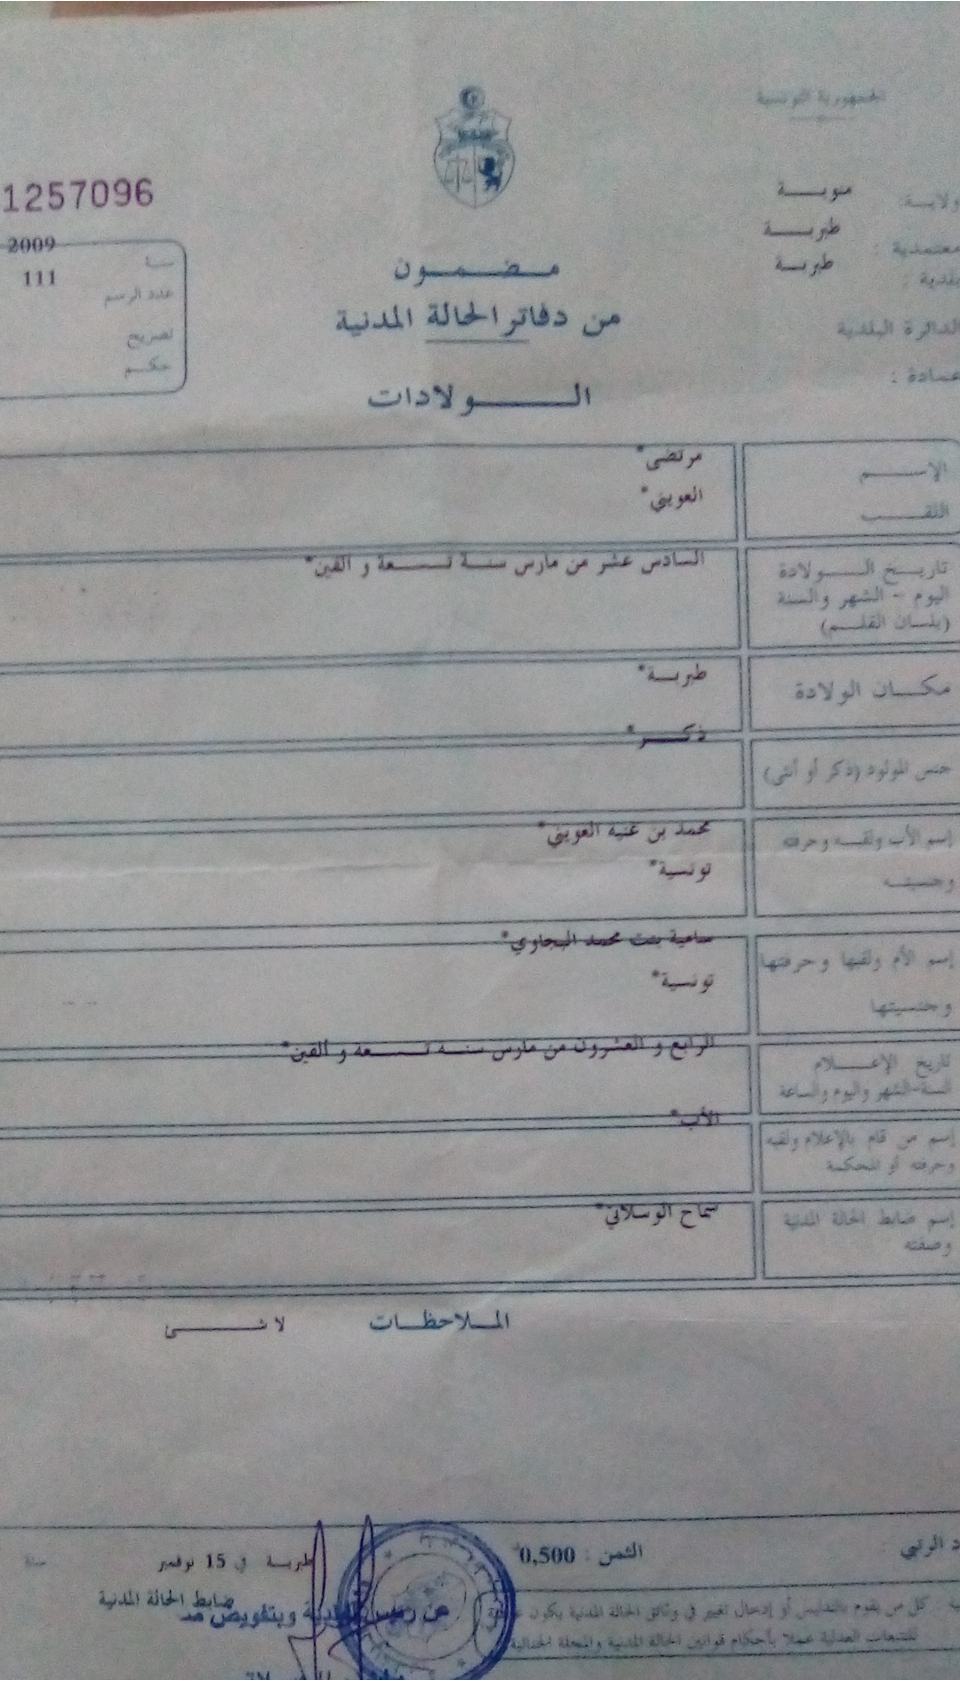 الجمهورية التونسية
ولاية: منوبة
معتمدية : طبربة
بلدية : طبربة
الدائرة البلدية
عمادة :
1257096
سنة 2009
عدد الرسم 111
تصريح
حكم
مضمون
من دفاتر الحالة المدنية
الولادات
الإسم مرتضى*
اللقب العويني*
تاريخ الولادة السادس عشر من مارس سنة تسعة و ألفين*
اليوم - الشهر والسنة
(بلسان القلم)
مكان الولادة طبربة*
جنس المولود (ذكر أو أنثى) ذكر*
إسم الأب ولقبه وحرفته محمد بن عنية العويني*
وجنسيته تونسية*
إسم الأم ولقبها وحرفتها بنت محمد البجاوي*
وجنسيتها تونسية*
تاريخ الإعلام الرابع و العشرون من مارس سنة تسعة و ألفين*
السنة-الشهر واليوم والساعة
إسم من قام بالإعلام ولقبه الأب*
وحرفته أو المحكمة
إسم ضابط الحالة المدنية سماح الوسلاتي*
وصفته
الملاحظات لا شئ
الثمن : 0,500
طبربة في 15 نوفمبر
ضابط الحالة المدنية
عن رئيس البلدية وبتفويض منه
كل من يقوم بالتدليس أو إدخال تغيير في وثائق الحالة المدنية يكون عرضة
للتتبعات العدلية عملا بأحكام قوانين الحالة المدنية والمجلة الجنائية